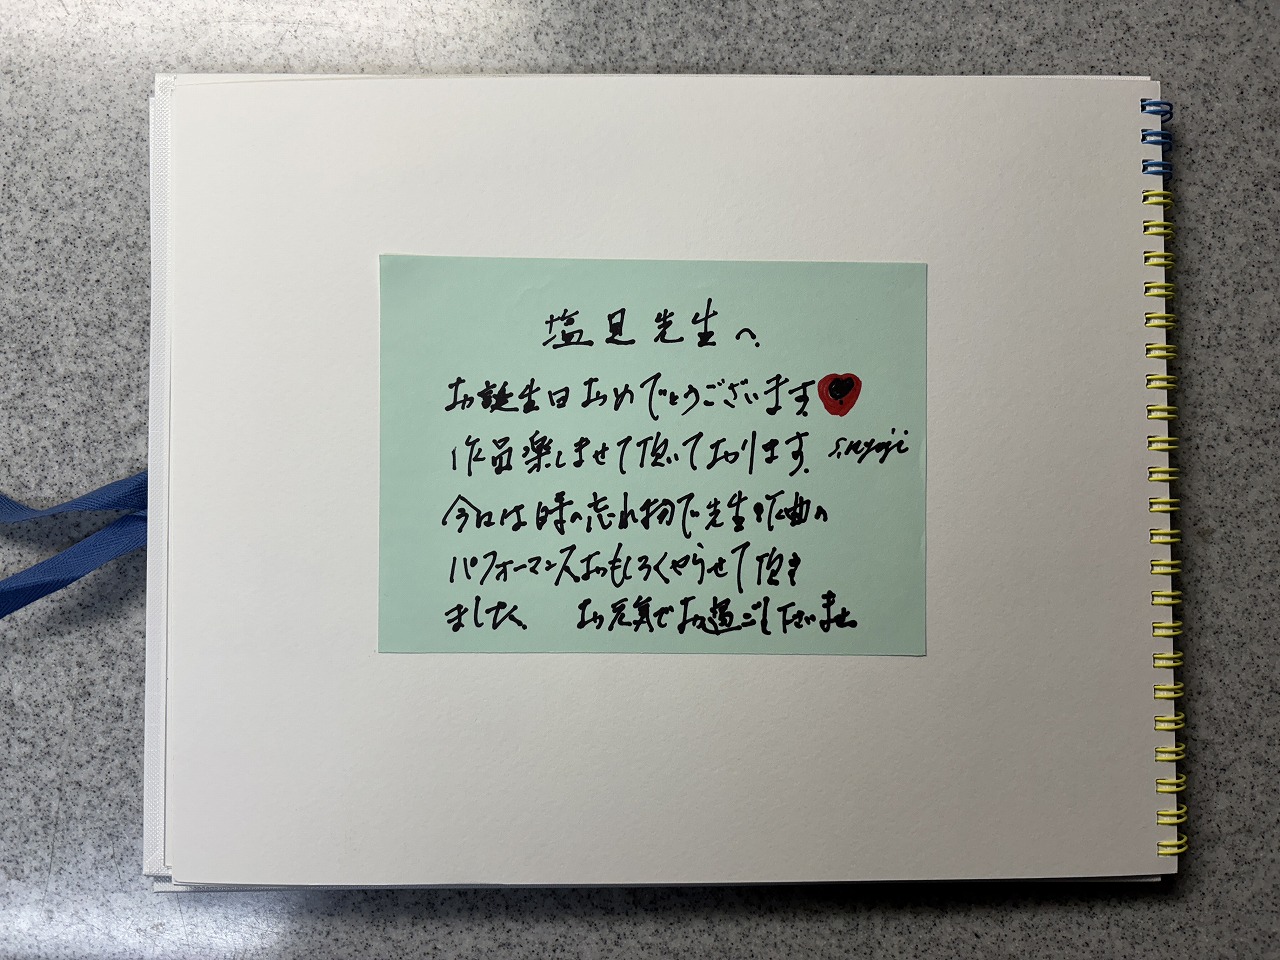 塩見先生へ
お誕生日おめでとうございます
作品楽しませて頂いております。
今日は時の忘れ物で先生作曲の
パフォーマンスおもしろくやらせて頂き
ました。 お元気でお過ごし下さいませ。